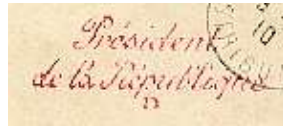 Président
de la République
10